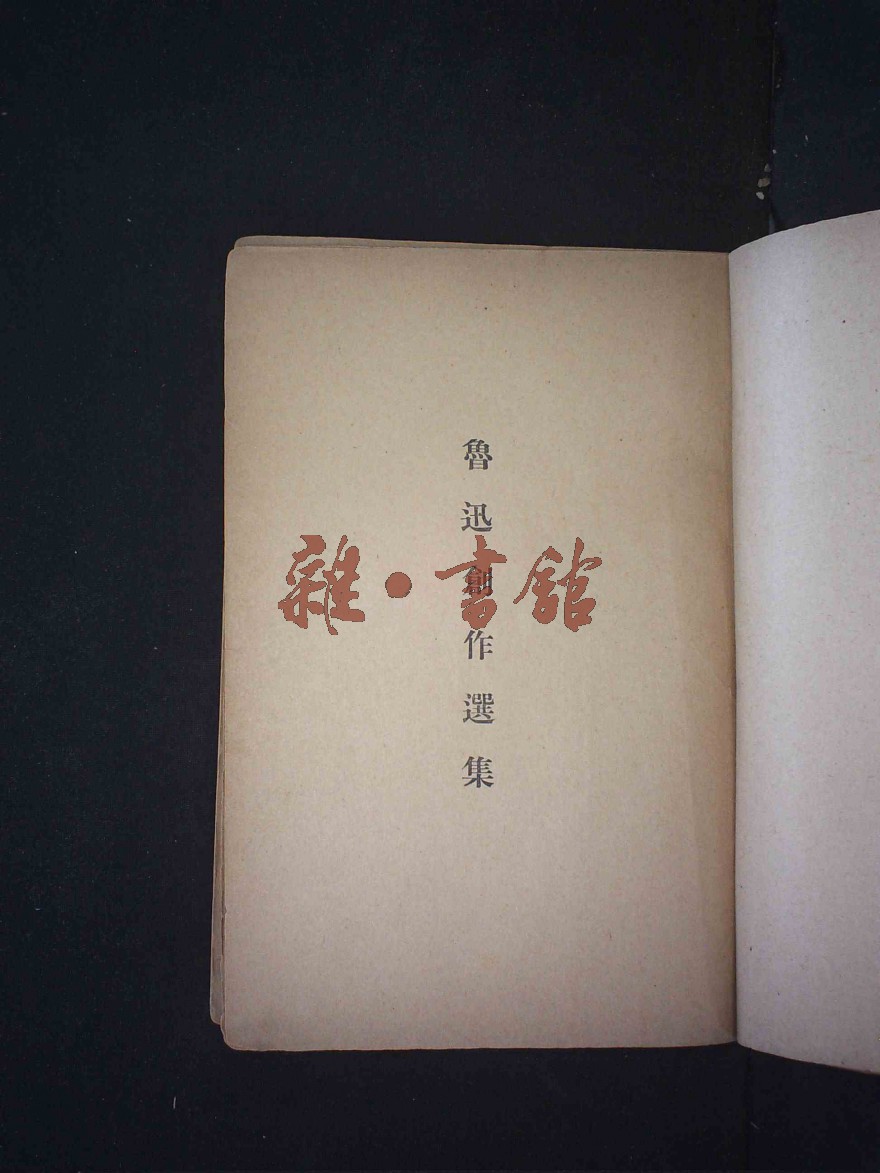 魯迅創作選集
雜·書館